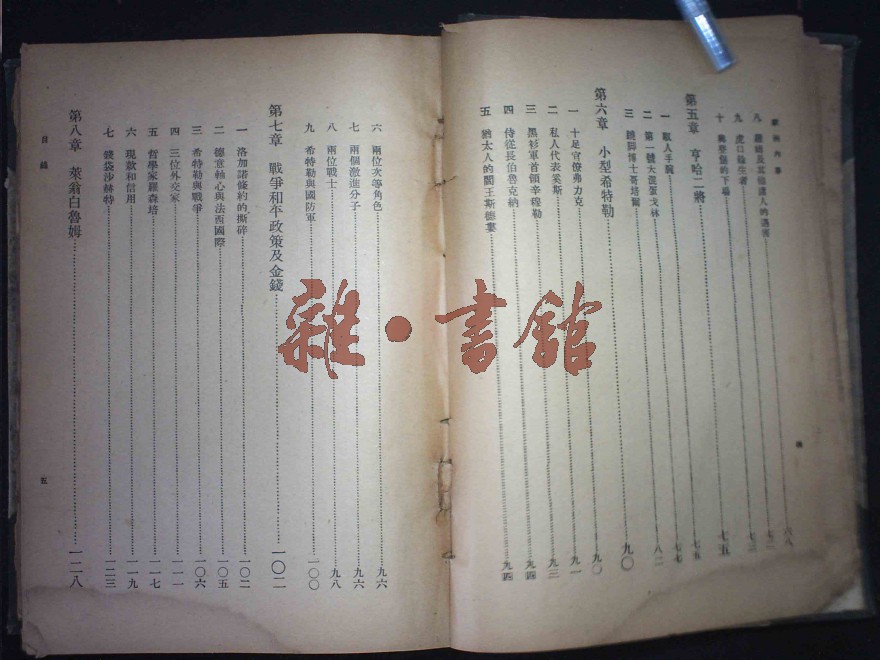 歐洲內幕
八 羅姆及其他諸人的遇害……六八
九 虎口餘生者……七三
十 興登堡的下場……七五
第五章 亨哈二將……七五
一 取人手腕……七七
二 第一號大混蛋戈林……八二
三 跛脚博士哥培爾……九〇
第六章 小型希特勒……九〇
一 十足官僚弗力克……九一
二 私人代表柒斯……九三
三 黑衫軍首領辛穆勒……九四
四 侍從長伯魯克納……九四
五 猶太人的閻王斯德婁
六 兩位次等角色……九六
七 兩個激進分子……九六
八 兩位戰士……九八
九 希特勒與國防軍……一〇〇
第七章 戰爭和平政策及金錢……一〇二
一 洛加諾條約的撕碎……一〇二
二 德意軸心與法西國際……一〇五
三 希特勒與戰爭……一〇六
四 三位外交家……一一一
五 哲學家羅森培……一一七
六 現款和信用……一一九
七 錢袋沙赫特……一二三
第八章 萊翁白魯姆……一二八
目錄
五
雜·書館